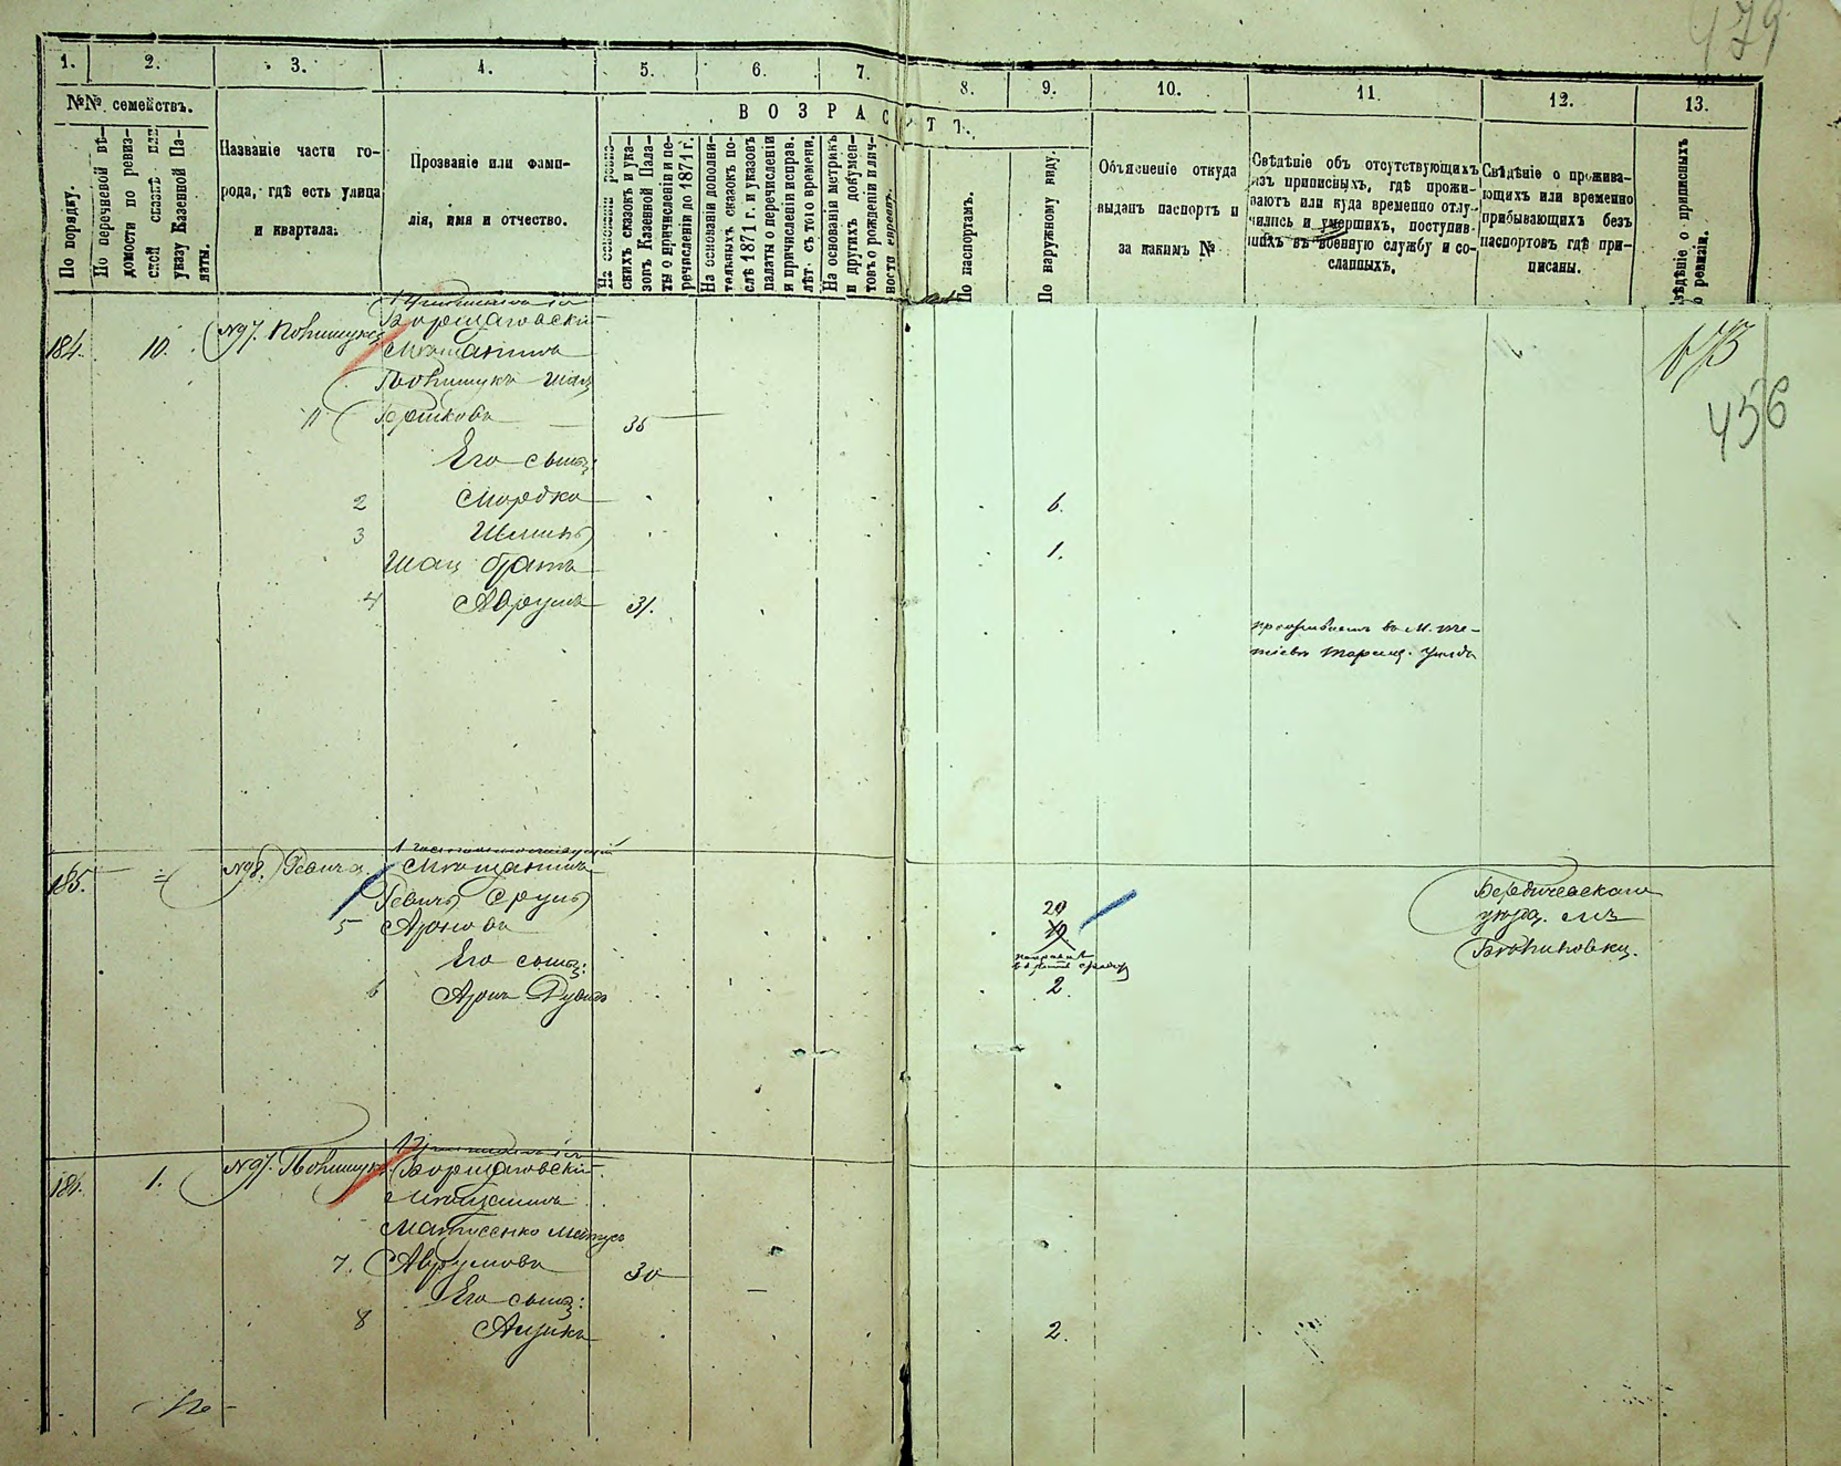 479
1. 2. 3. 4. 5. 6. 7. 8. 9. 10. 11. 12. 13.
№№ семействъ.
По порядку.
По перечневой вѣ-
домости по ревиз-
ской сказкѣ или
указу Казенной Па-
латы.
Названіе части го-
рода, гдѣ есть улица
и квартала.
Прозваніе или фами-
лія, имя и отчество.
ВОЗРАСТЪ.
На основаніи ревиз-
скихъ сказокъ и ука-
зовъ Казенной Пала-
ты о причисленіи и пе-
речисленіи до 1871 г.
На основаніи дополни-
тельныхъ сказокъ по-
слѣ 1871 г. и указовъ
палаты о перечисленіи
и причисленіи исправ.
лѣт. съ того времени.
На основаніи метрикъ
и другихъ докумен-
товъ о рожденіи и лич-
ности евреевъ.
По паспортамъ.
По наружному виду.
Объясненіе откуда
выданъ паспортъ и
за какимъ №
Свѣдѣніе объ отсутствующихъ
изъ приписныхъ, гдѣ прожи-
ваютъ или куда временно отлу-
чились и умершихъ, поступив-
шихъ въ военную службу и со-
сланныхъ.
Свѣдѣніе о прожива-
ющихъ или временно
прибывающихъ безъ
паспортовъ гдѣ при-
писаны.
Свѣдѣніе о приписныхъ
по ревизіи.
184. 10. №97.
Борщаговскій
Мѣщанинъ
456
Берковъ 35
Его сыны:
2 Мордко 6.
3 1.
братъ
4 Аврумъ 31.
проживаетъ въ м.
Таращ. уѣзда
185. №98. Ревича
Мѣщанинъ
Ревичъ Сруль 20
5 Ароновъ
Бердичевскаго
уѣзда. мѣ
Его сыны:
6 Аронъ Дувидъ 2.
186. 1. №97.
Борщаговскій
Мѣщанинъ
Матусенко Матусъ
7. Аврумовъ 30
Его сыны:
8 2.